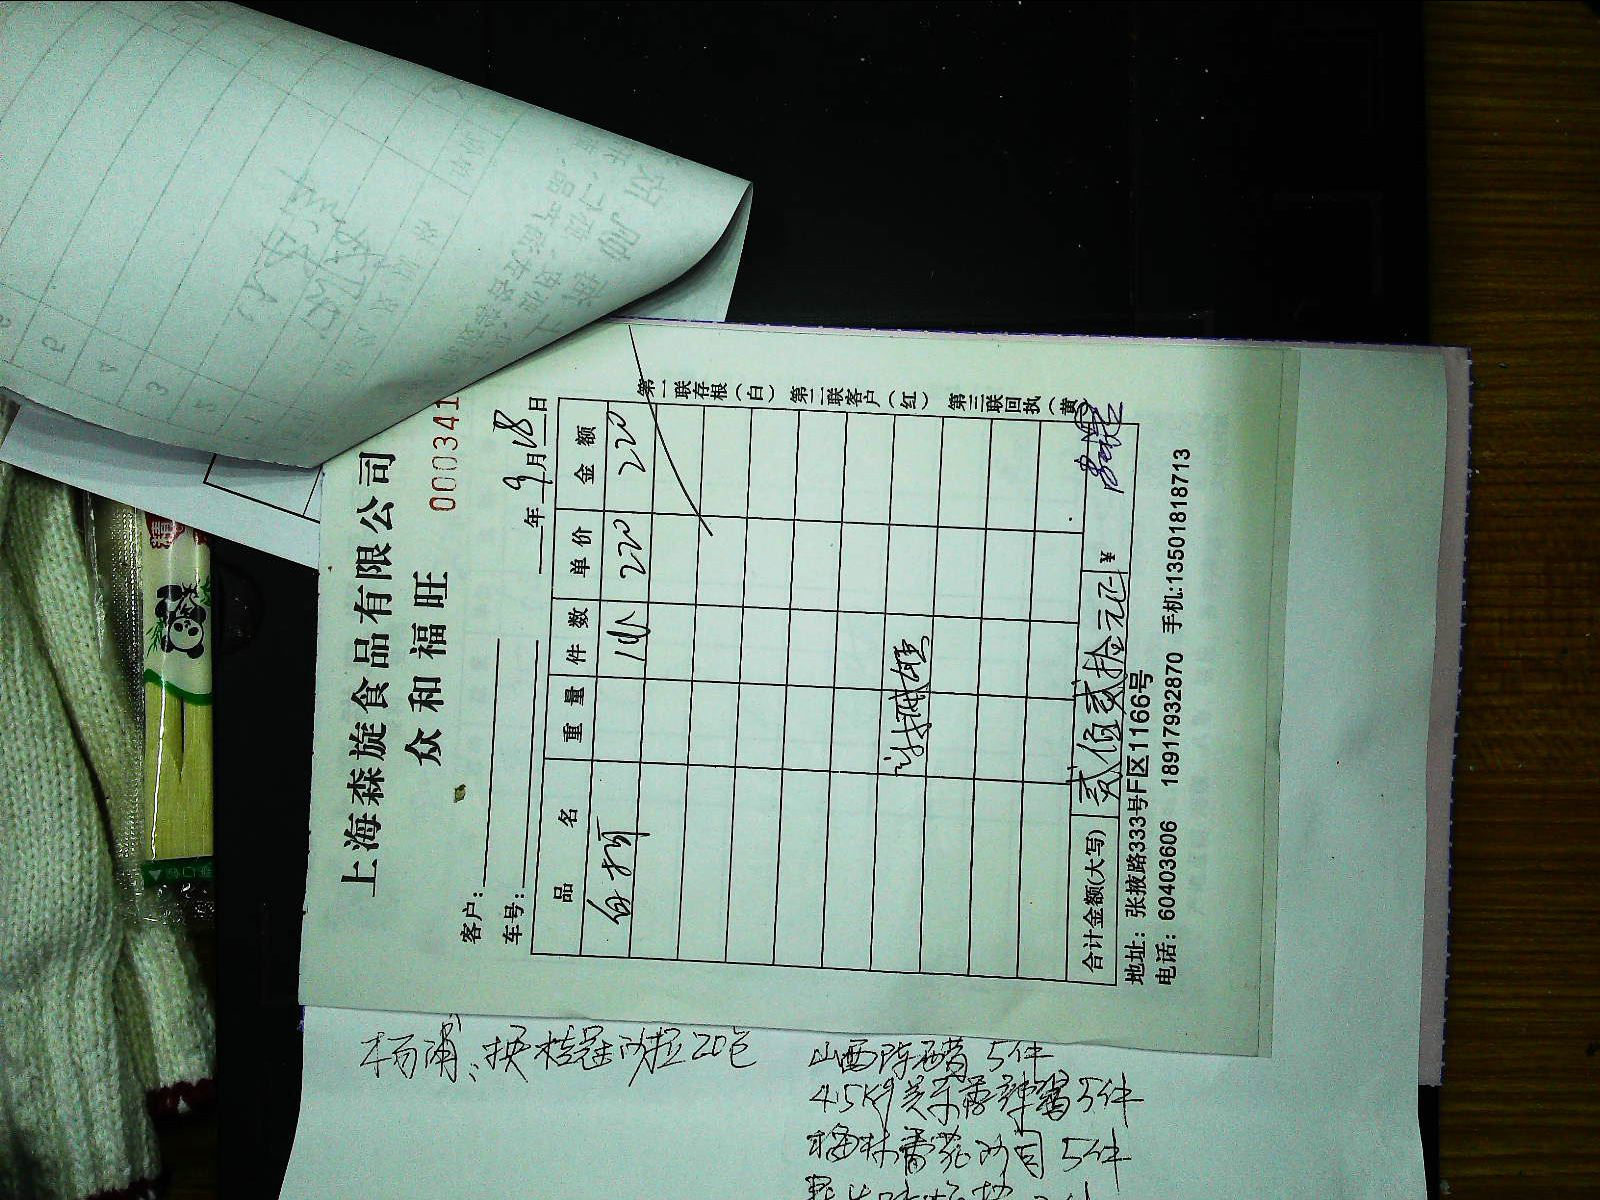 上海森旋食品有限公司
众和福旺
000341
客户:
年 9 月 18 日
车号:
品 名 重 量 件 数 单 价 金 额
1件 220 220
合计金额(大写) 贰佰贰拾元正 ¥
地址: 张掖路333号F区1166号
电话: 60403606 18917932870 手机:13501818713
第一联存根(白) 第二联客户(红) 第三联回执(黄)
杨浦、换桂冠沙拉20包
山西陈醋 5件
4.5Kg美乐香辣酱5件
格林番茄沙司 5件